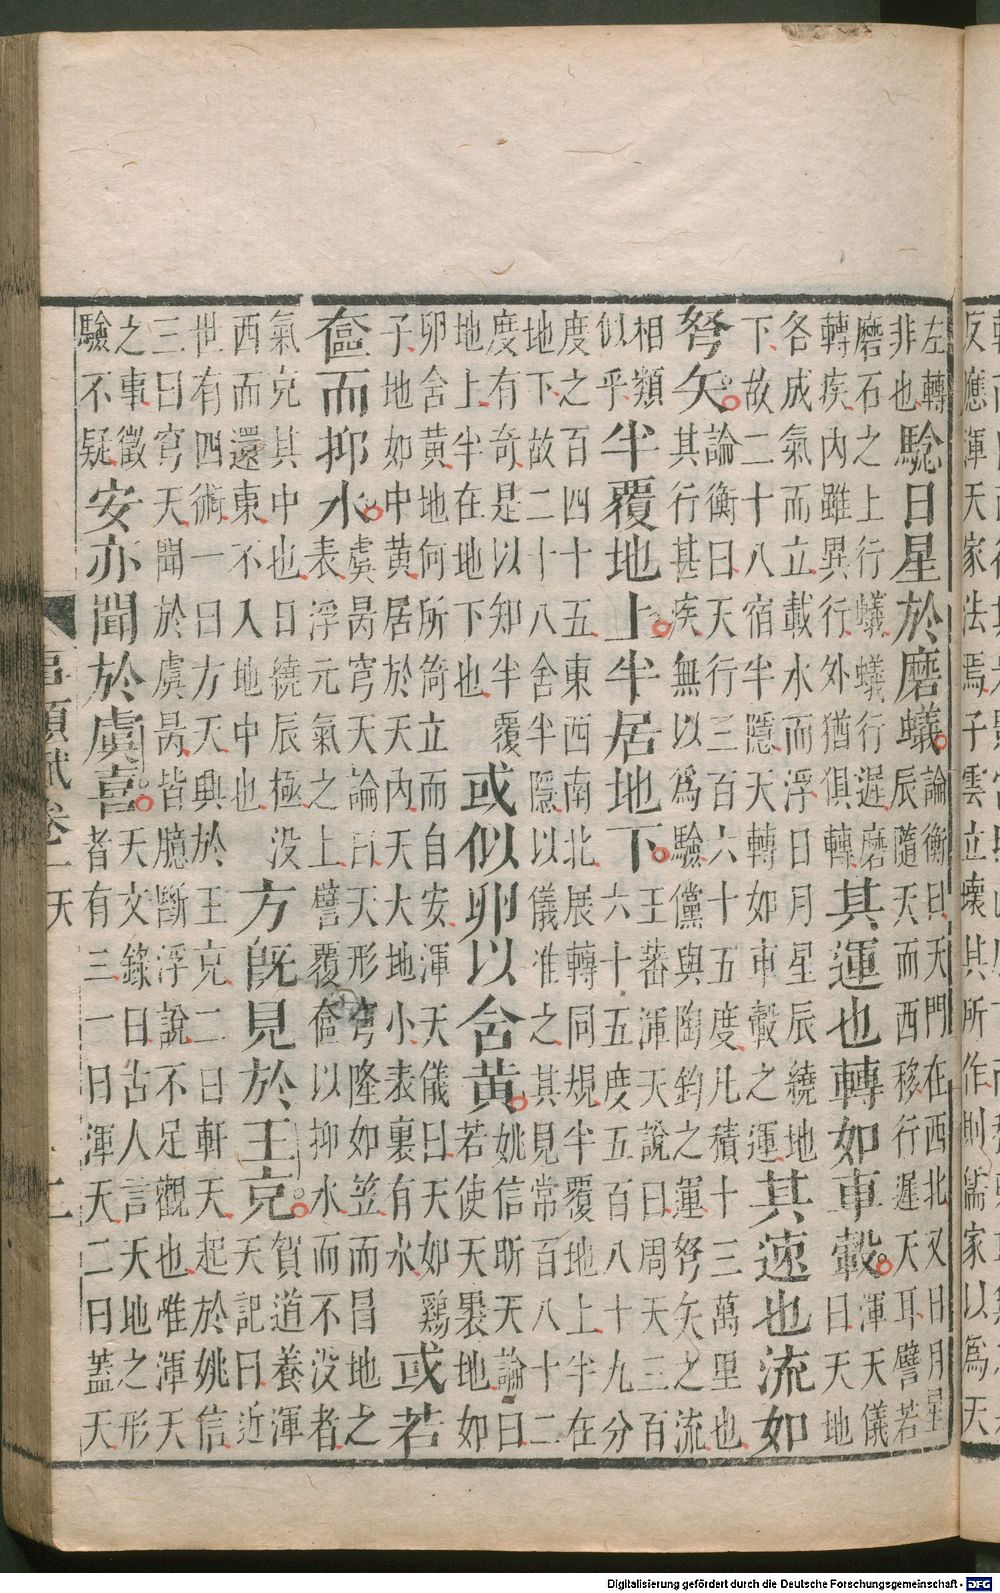 反應渾天家法焉子雲立壞其所作則儒家以為天
左轉
非也
騐日星於磨蟻
論衡曰天門在西北又日月星
辰隨天而西移行遲天耳譬若
磨石之上行蟻蟻行遲磨
轉疾內雖異行外猶俱轉
其運也轉如車轂
渾天儀
曰天地
各成氣而立載水而浮日月星辰繞地
下故二十八宿半隱天轉如車轂之運
其速也流如
弩矢
論衡曰天行三百六十五度凡積十三萬里也
其行甚疾無以爲驗儻與陶鈞之運弩矢之流
相類
似乎
半覆地上半居地下
王蕃渾天說曰周天三百
六十五度五百八十九分
度之百四十五東西南北展轉同規半覆地上半在
地下故二十八舍半隱以儀准之其見常百八十二
度有奇是以知半覆
地上半在地下也
或似卵以含黃
姚信昕天論曰
若使天褁地如
卵含黃地何所倚立而自安渾天儀曰天如鷄
子地如中黃居於天內天大地小表裏有水
或若
奩而抑水
虞昺穹天論曰天形穹隆如笠而冒地之
表浮元氣之上譬覆奩以抑水而不没者
氣充其中也日繞辰極没
西而還東不入地中也
方旣見於王充
賀道養渾
天記曰近
世有四術一曰方天興於王充二曰軒天起於姚信
三曰穹天聞於虞昺皆臆斷浮說不足觀也唯渾天
之事徵
驗不疑
安亦聞於虞喜
天文錄曰古人言天地之形
者有三一曰渾天二曰蓋天
事類賦卷一 天 二
Digitalisierung gefördert durch die Deutsche Forschungsgemeinschaft - DFG